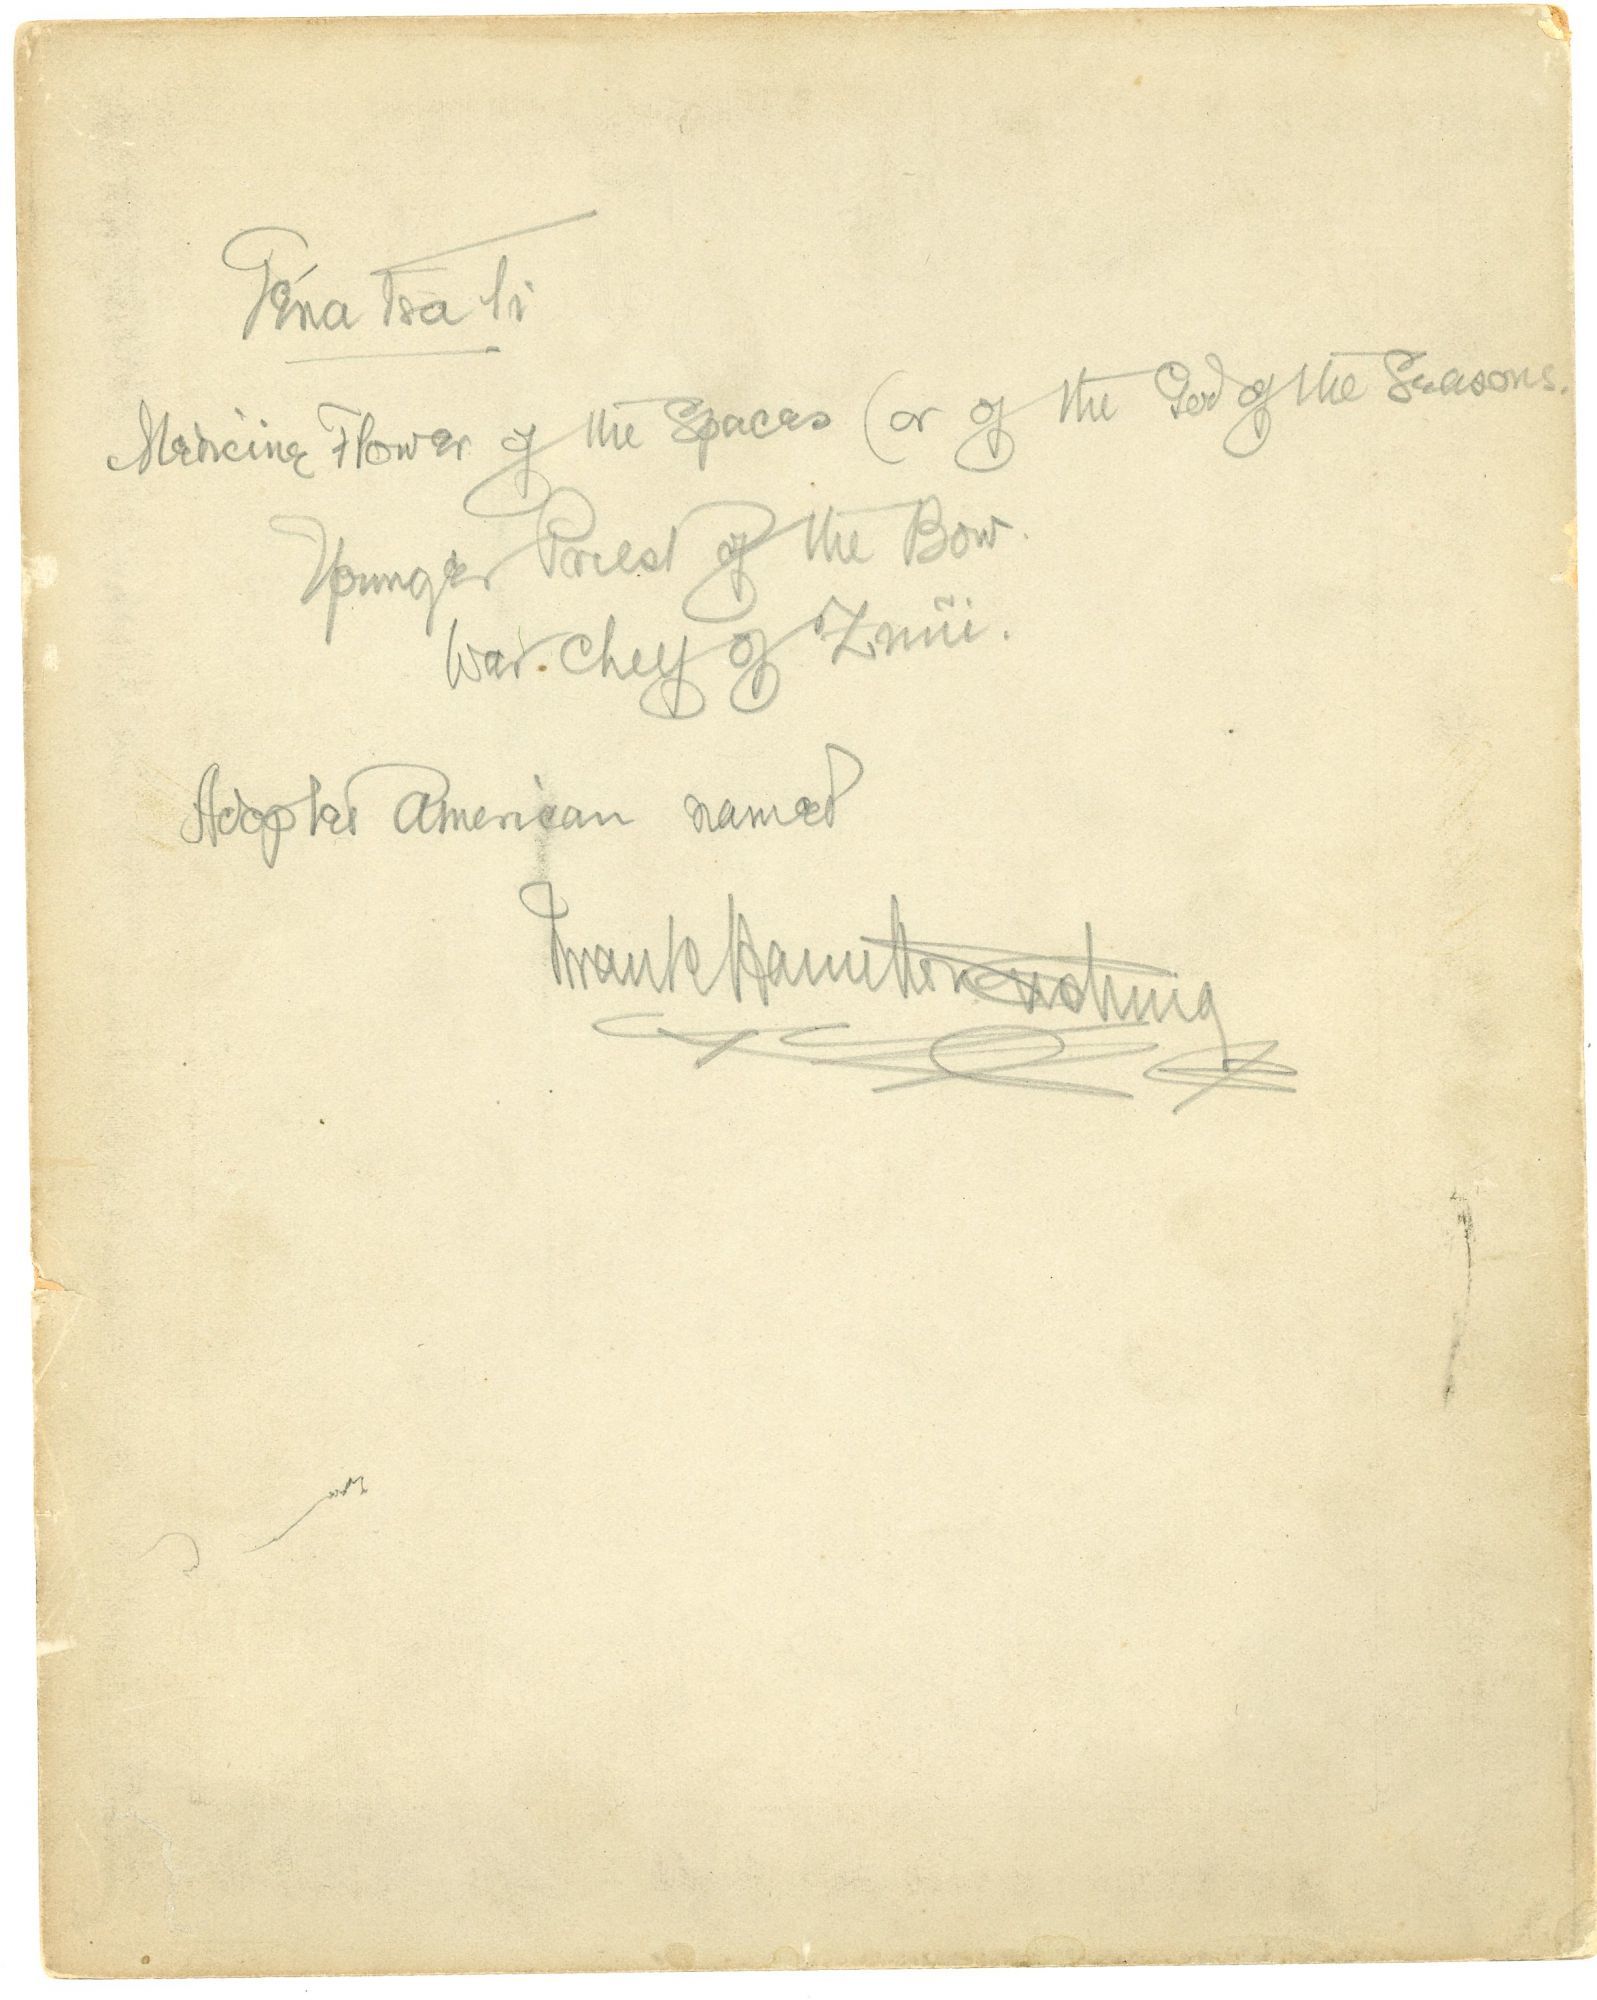 Téna Tsa li
Medicine Flower of the Spaces (or of the God of the Seasons.
Younger Priest of the Bow.
War Chief of Zuñi.
Adopted American named
Frank Hamilton Cushing